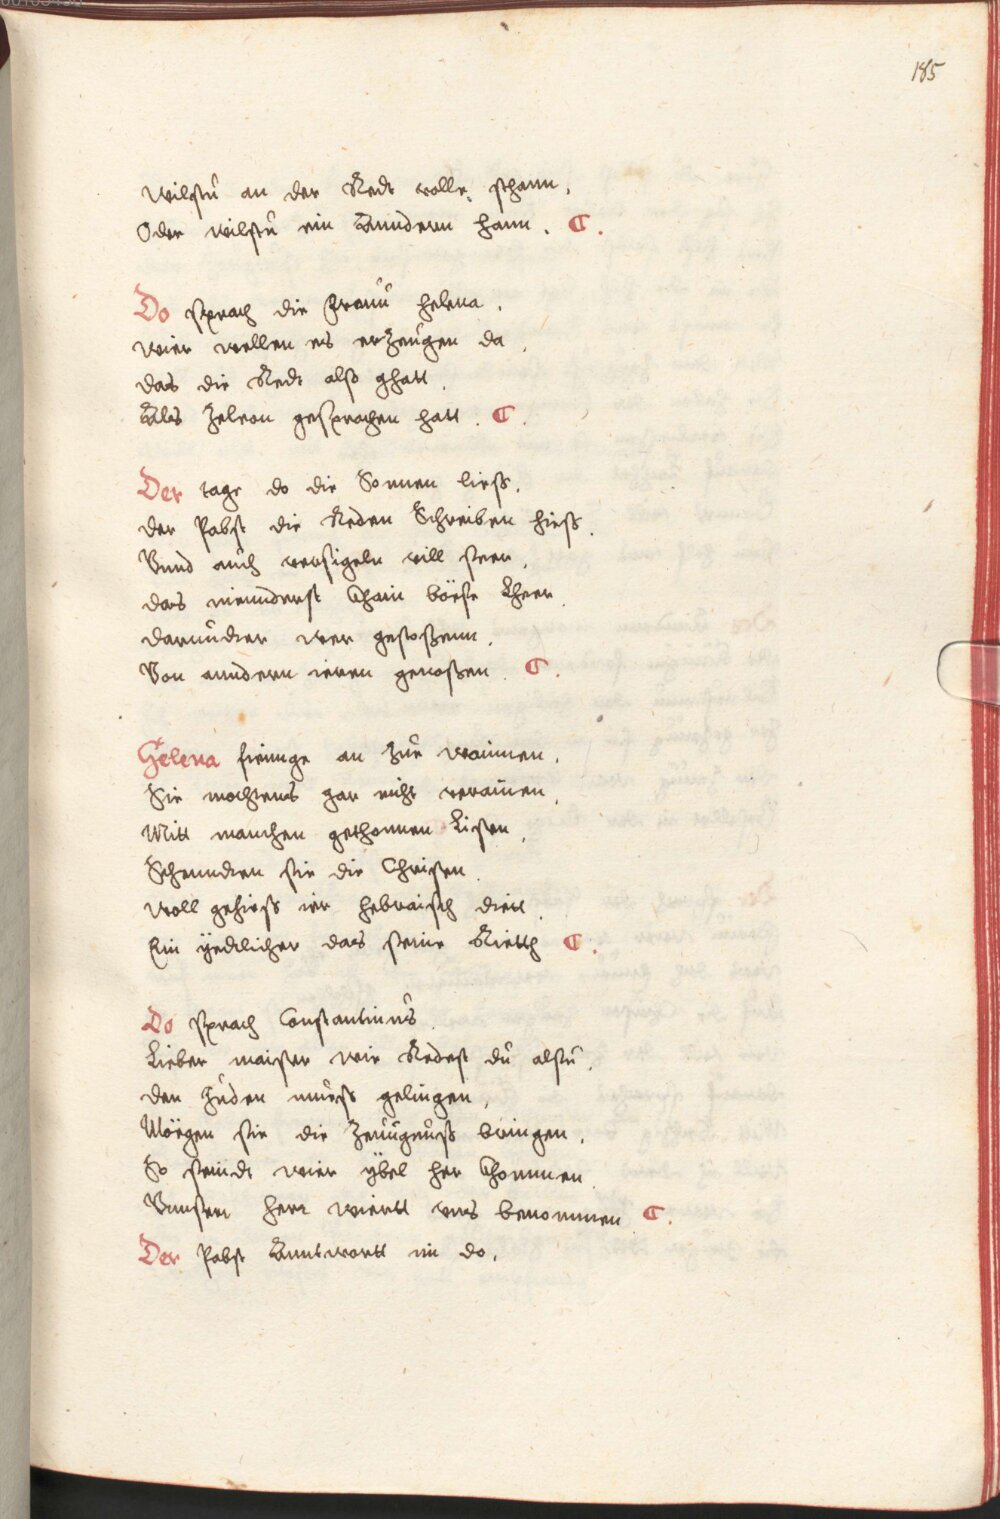 185
Wilstu an der Redt volle sthann.
Oder wilstu ein Anndern hann.
Do sprach die Frauu helena.
wier wellen es erzeugen da
das die Redt alß ghatt
Als Zeleon gesprochen hatt.
Der tage do die Sonnen ließ.
der Pabst die Reden Schreiben hieß.
Vnnd auch versigeln vill seer.
das niennderst Chain böese Lheer
darunder wer gestoßenn.
Von anndern ieren genoßen.
Helena fieunge an zur wainen.
Sie mochtens gar nicht verainen
Mitt manchen gethonnen Listen
Schenndten sie die Christen
woll gehieß ier hebraisch diett
Ein yedtlicher das seine Rietth
Do sprach Constantinus
Lieber maister wie Redest du alsu.
den Juden mueß gelingen,
Möegen sie die Zeuugnuß bringen.
So seindt wier ybel her Chommen
Vnnseer herr wiertt vns benommen
Der Pabst Anntwortt im do.